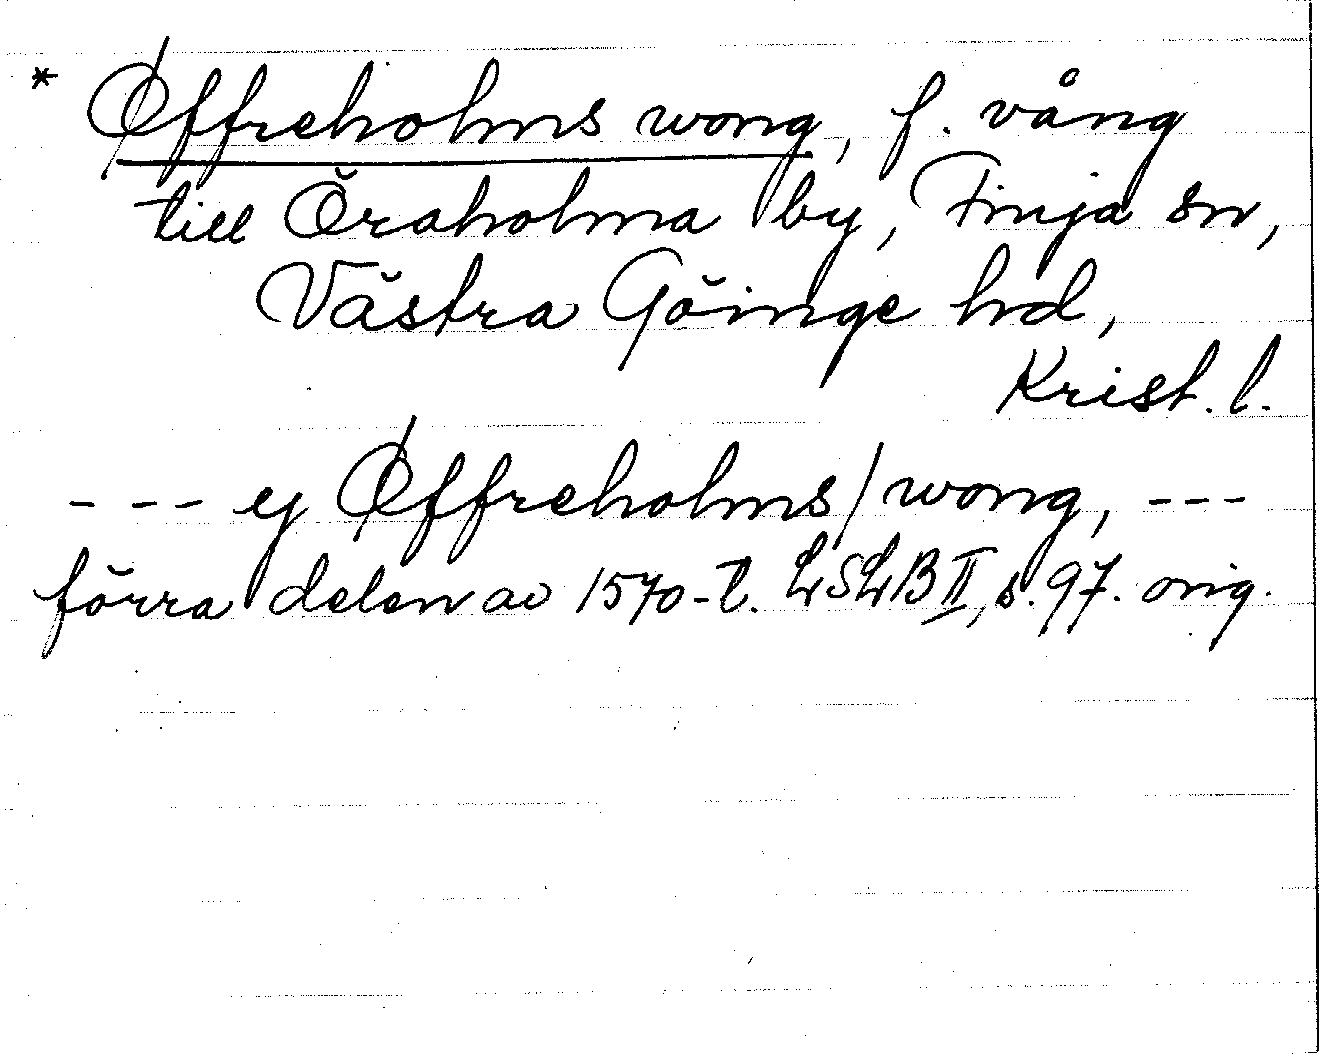 * Øffreholms wong, f. vång
till Öraholma by, Finja sn,
Västra Göinge hd,
Krist. l.
- - - ej Øffreholms/wong, - - -
förra delen av 1570-t. LSLB II, s. 97. orig.